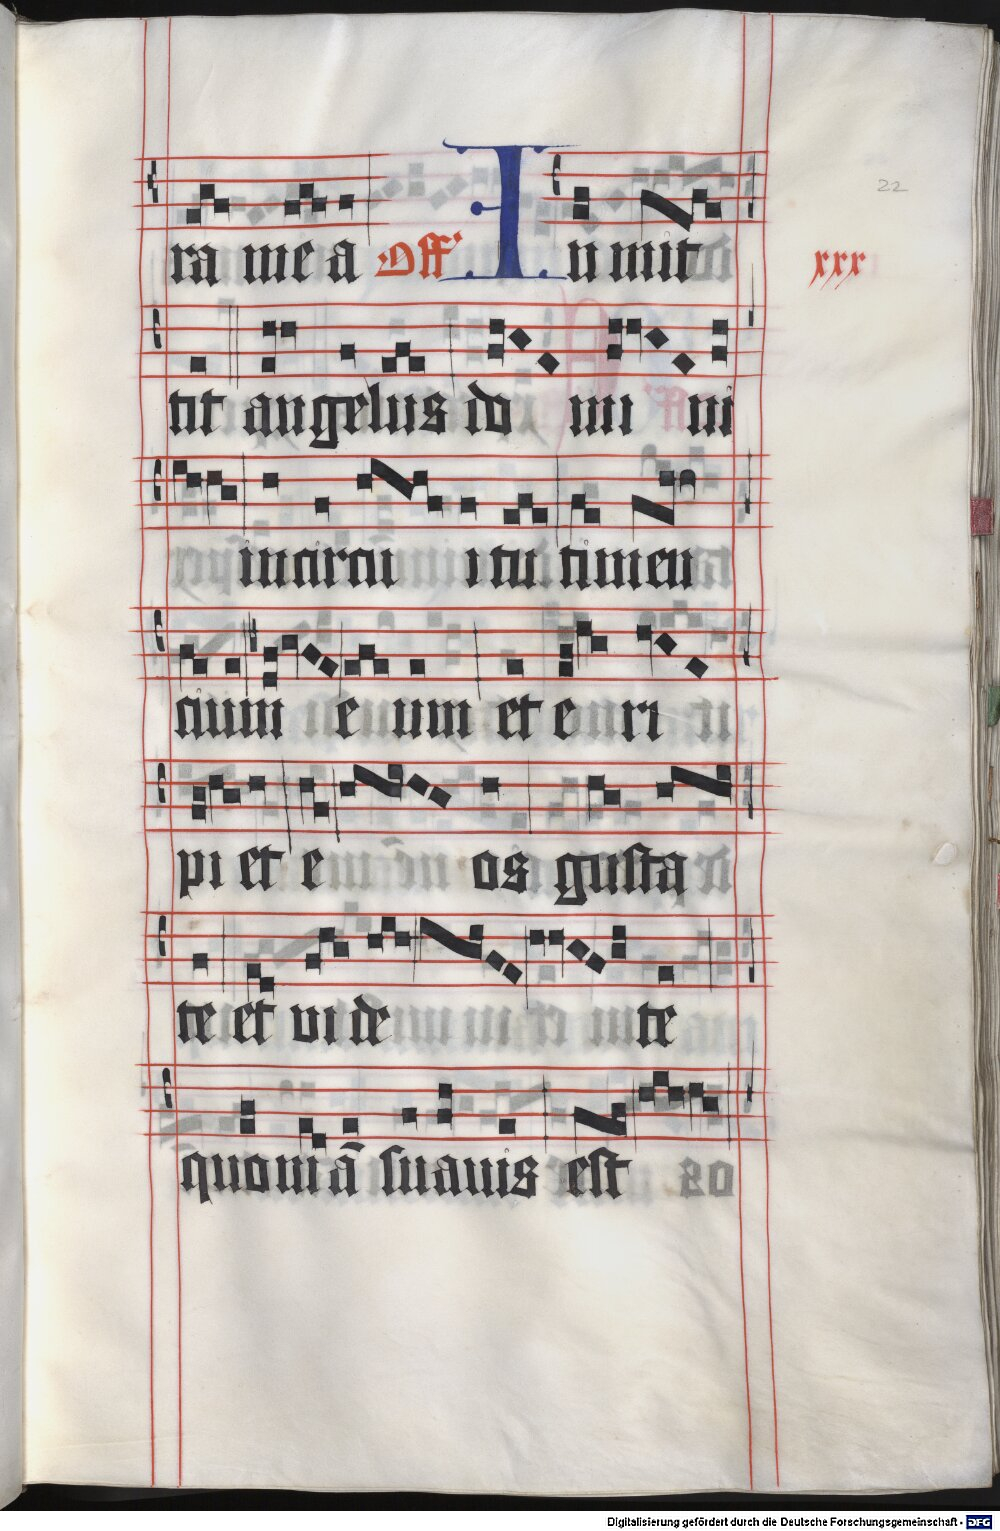 ra me a Off I n mit
22
xxx
tit angelus do mi ni
in circu itu timen
cium e um et e ri
pi et e os gusta
te et vi de te
quoniā suauis est
Digitalisierung gefördert durch die Deutsche Forschungsgemeinschaft - DFG